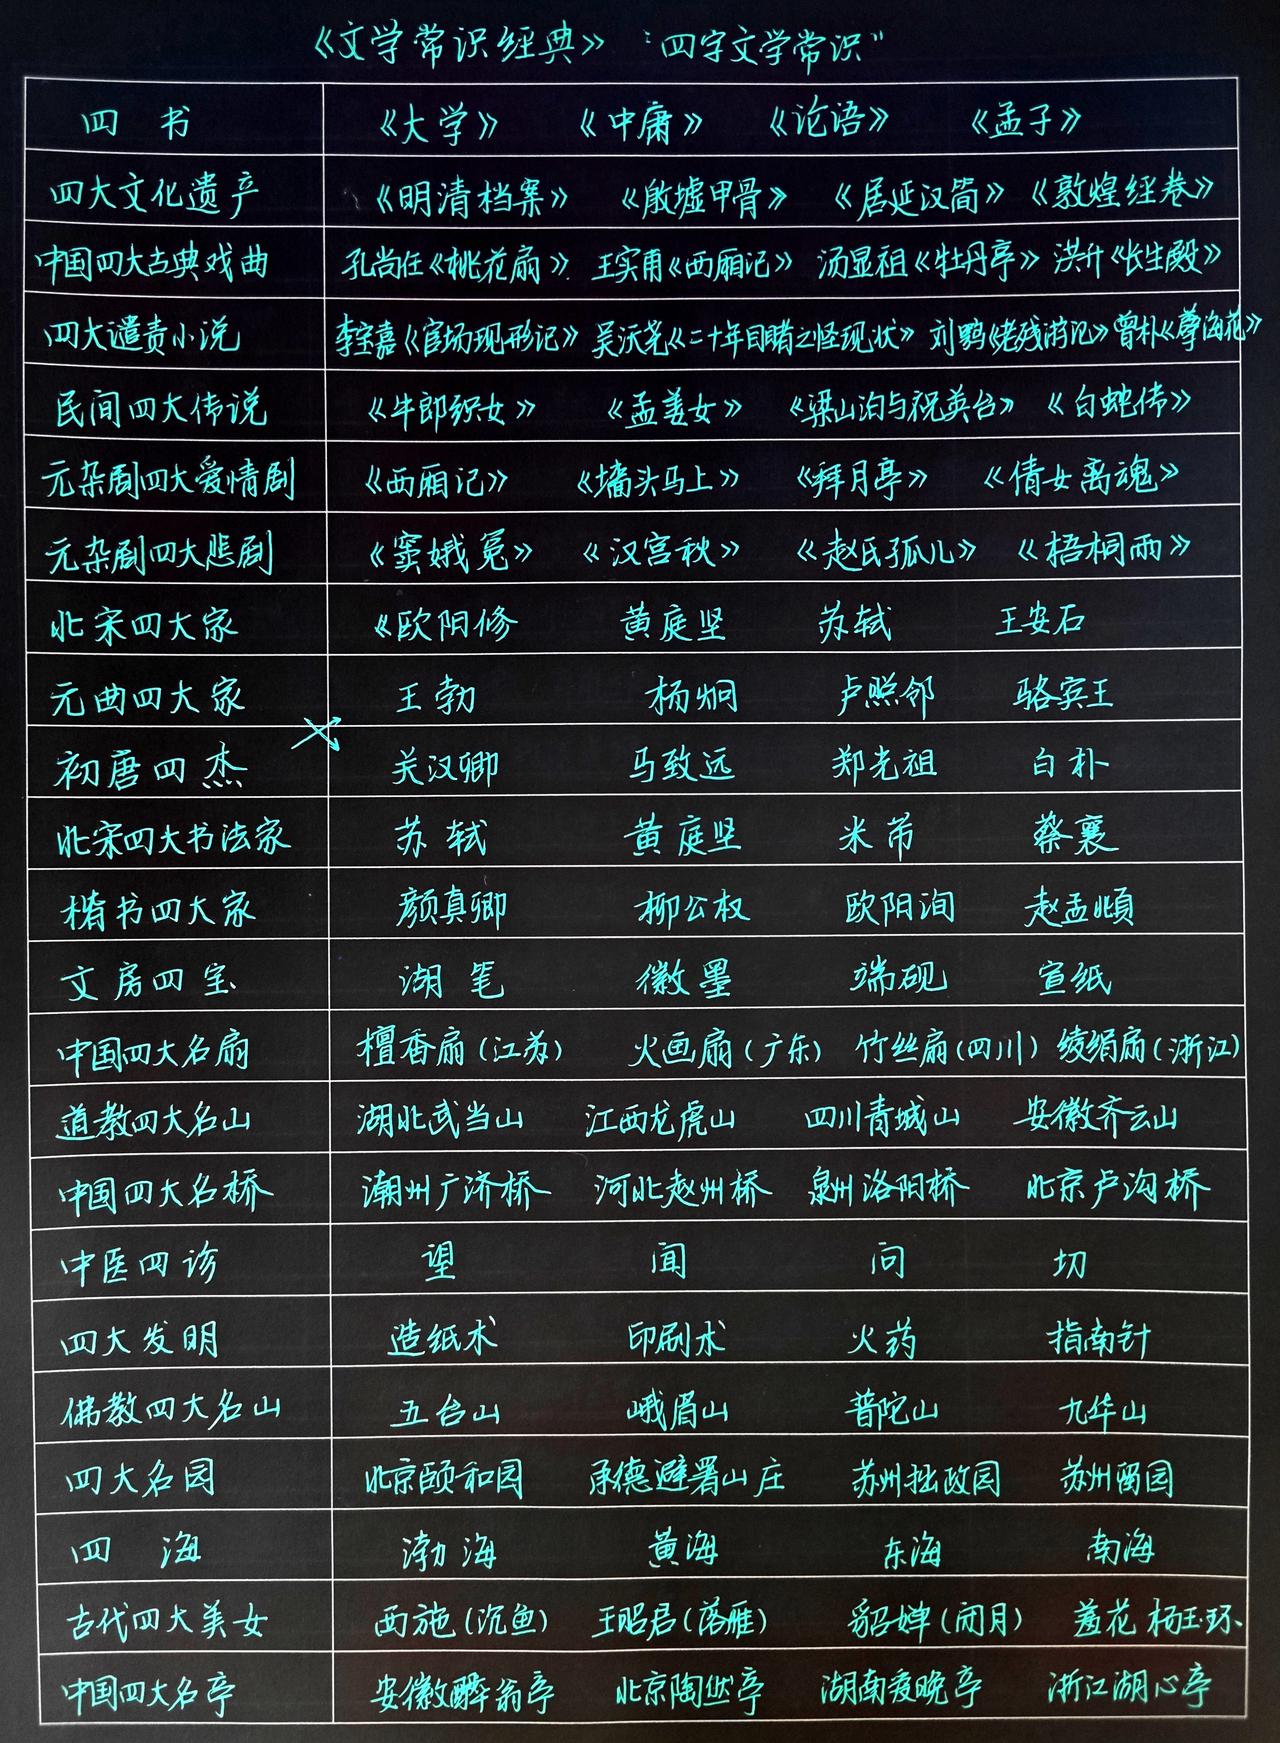 《文学常识经典》 “四字文学常识”
四书 《大学》 《中庸》 《论语》 《孟子》
四大文化遗产 《明清档案》 《殷墟甲骨》 《居延汉简》 《敦煌经卷》
中国四大古典戏曲 孔尚任《桃花扇》 王实甫《西厢记》 汤显祖《牡丹亭》 洪升《长生殿》
四大谴责小说 李宝嘉《官场现形记》 吴沃尧《二十年目睹之怪现状》 刘鹗《老残游记》 曾朴《孽海花》
民间四大传说 《牛郎织女》 《孟姜女》 《梁山泊与祝英台》 《白蛇传》
元杂剧四大爱情剧 《西厢记》 《墙头马上》 《拜月亭》 《倩女离魂》
元杂剧四大悲剧 《窦娥冤》 《汉宫秋》 《赵氏孤儿》 《梧桐雨》
北宋四大家 《欧阳修 黄庭坚 苏轼 王安石
元曲四大家 王勃 杨炯 卢照邻 骆宾王
初唐四杰 关汉卿 马致远 郑光祖 白朴
北宋四大书法家 苏轼 黄庭坚 米芾 蔡襄
楷书四大家 颜真卿 柳公权 欧阳洵 赵孟頫
文房四宝 湖笔 徽墨 端砚 宣纸
中国四大名扇 檀香扇(江苏) 火画扇(广东) 竹丝扇(四川) 绫绢扇(浙江)
道教四大名山 湖北武当山 江西龙虎山 四川青城山 安徽齐云山
中国四大名桥 潮州广济桥 河北赵州桥 泉州洛阳桥 北京卢沟桥
中医四诊 望 闻 问 切
四大发明 造纸术 印刷术 火药 指南针
佛教四大名山 五台山 峨眉山 普陀山 九华山
四大名园 北京颐和园 承德避暑山庄 苏州拙政园 苏州留园
四海 渤海 黄海 东海 南海
古代四大美女 西施(沉鱼) 王昭君(落雁) 貂蝉(闭月) 羞花 杨玉环
中国四大名亭 安徽醉翁亭 北京陶然亭 湖南爱晚亭 浙江湖心亭